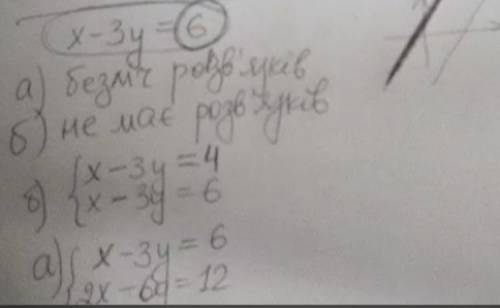 x-3y=6
а) безліч розв'язків
б) не має розв'язків
б) { x-3y=4
x-3y=6
а) { x-3y=6
2x-6y=12